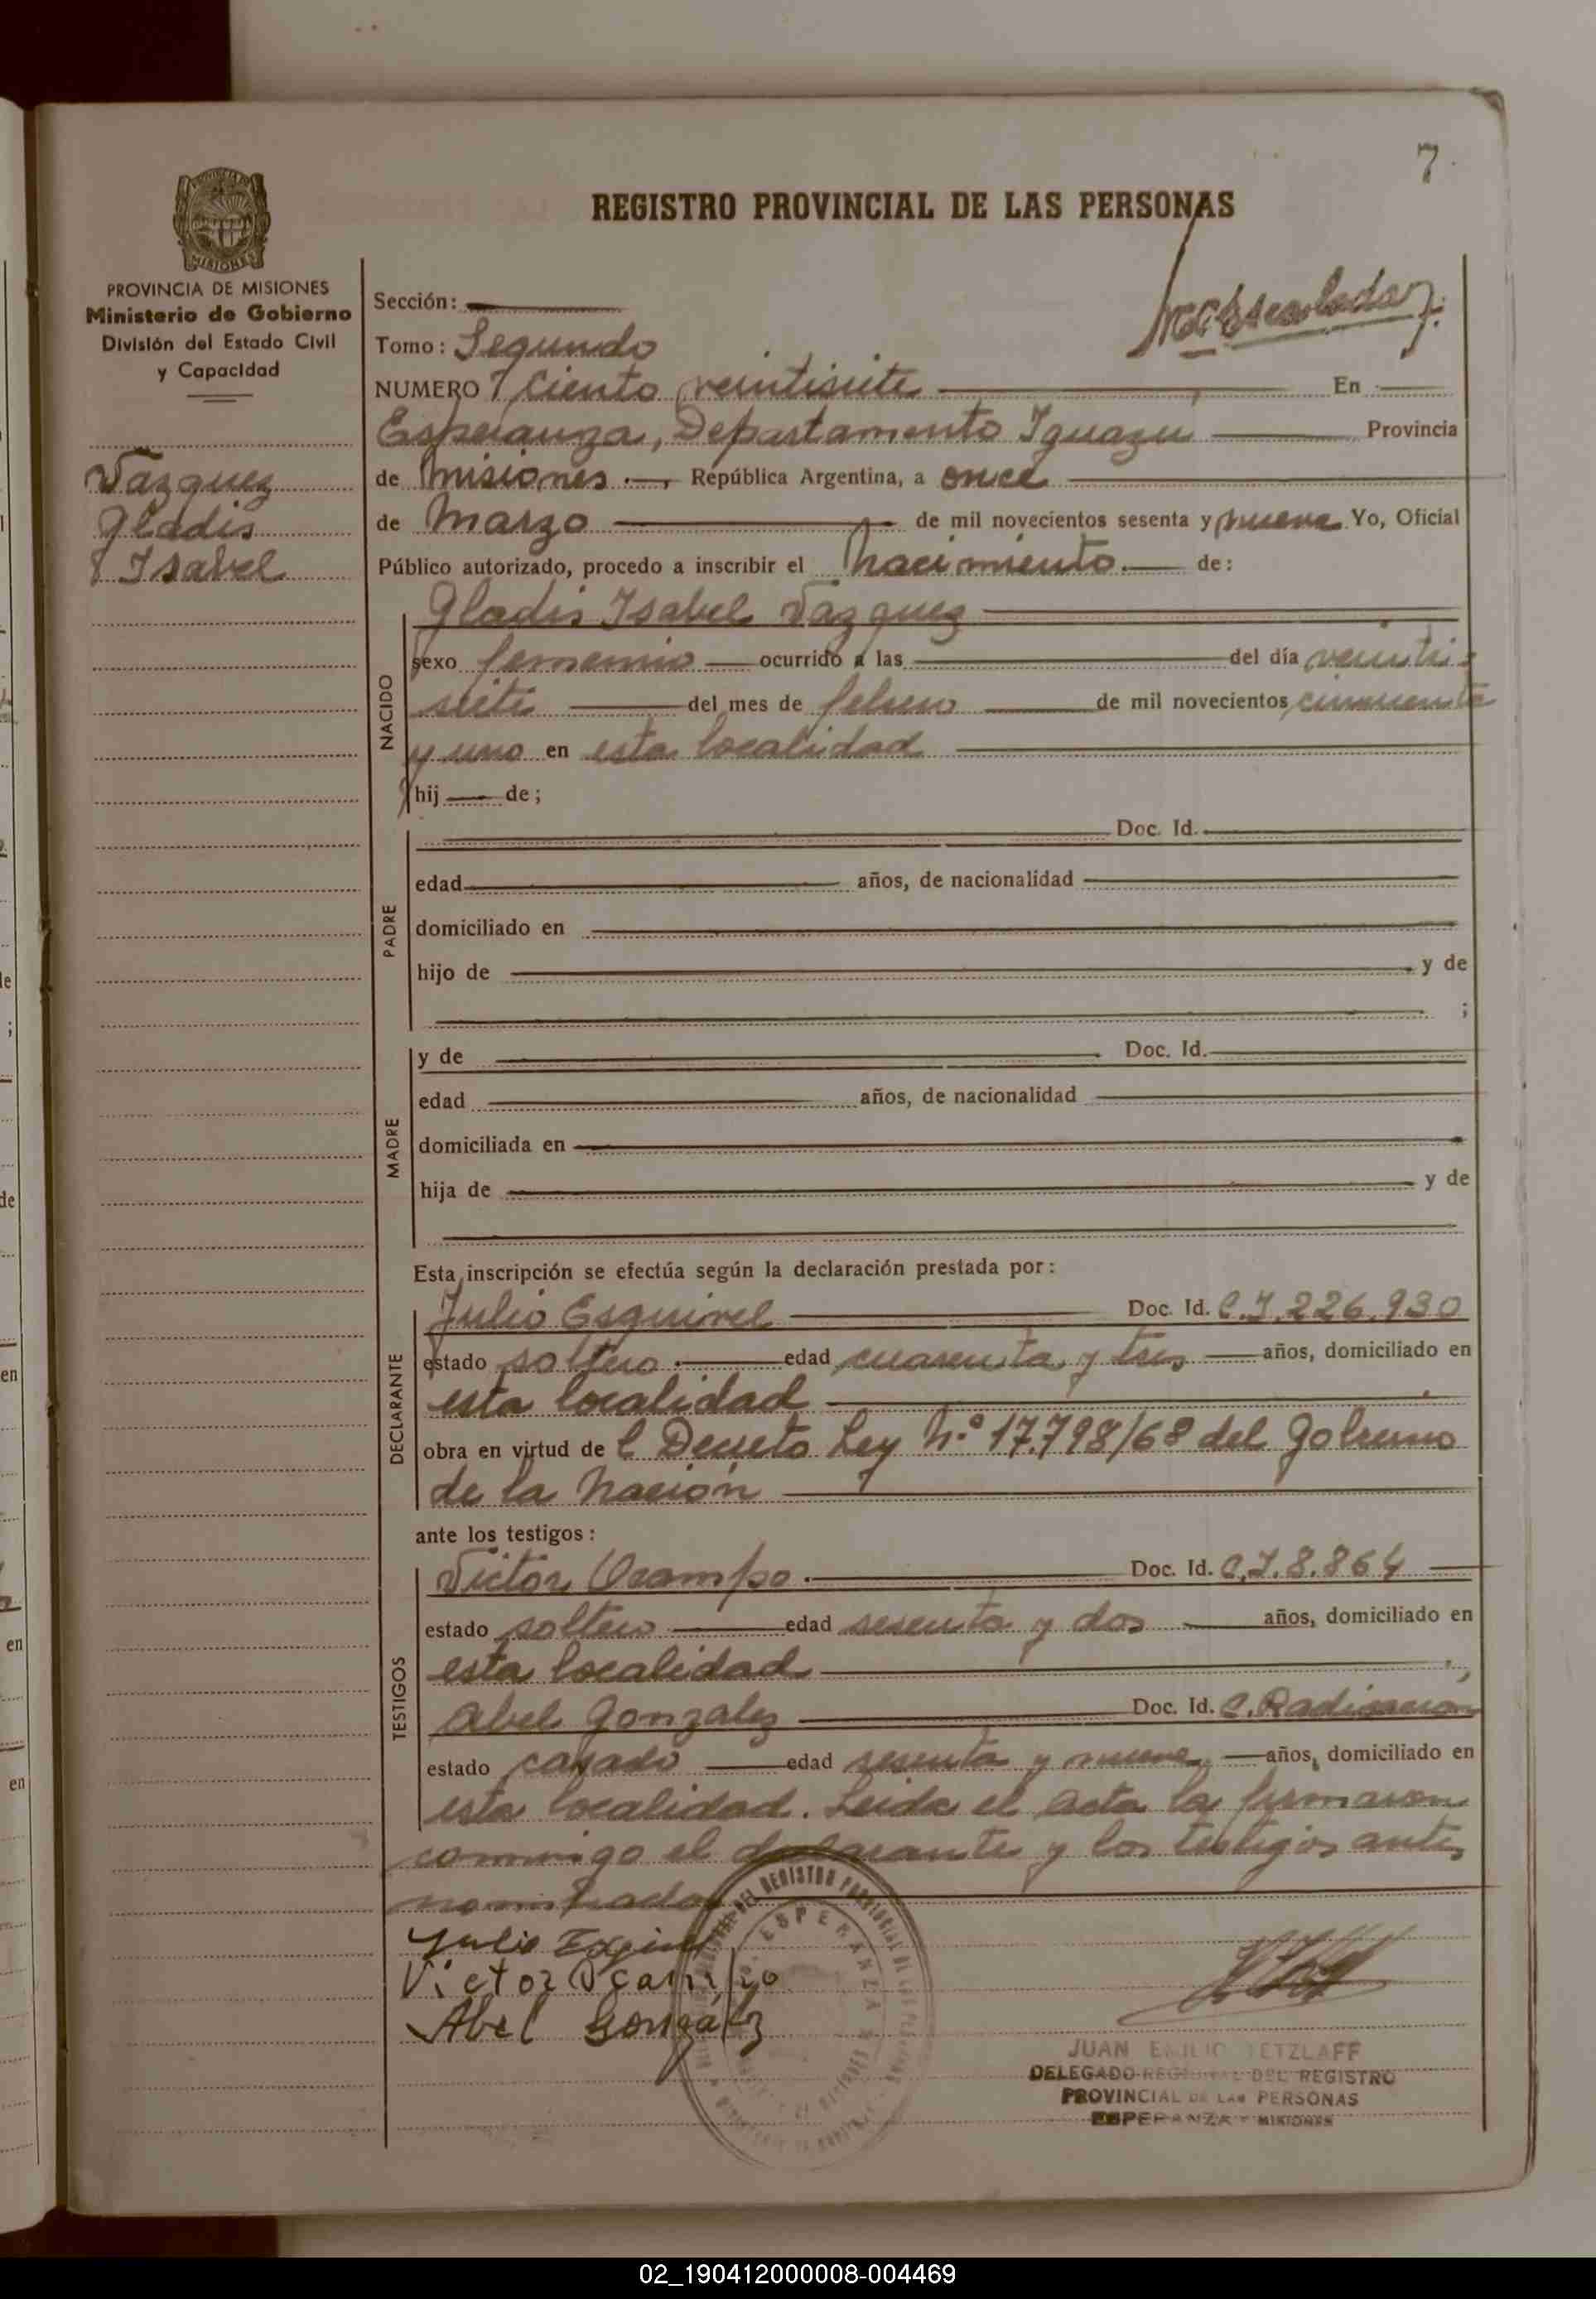 7.
REGISTRO PROVINCIAL DE LAS PERSONAS
PROVINCIA DE MISIONES
Ministerio de Gobierno
División del Estado Civil
y Capacidad
Vazquez
Gladis
Isabel
Sección:
Tomo: Segundo
NUMERO Ciento veintisiete En
Esperanza, Departamento Iguazú Provincia
de Misiones República Argentina, a once
de Marzo de mil novecientos sesenta y nueve Yo, Oficial
Público autorizado, procedo a inscribir el nacimiento de:
NACIDO
Gladis Isabel Vazquez
sexo femenino ocurrido a las del día veinti-
siete del mes de febrero de mil novecientos cincuenta
y uno en esta localidad
hij de;
PADRE
Doc. Id.
edad años, de nacionalidad
domiciliado en
hijo de y de
;
MADRE
y de Doc. Id.
edad años, de nacionalidad
domiciliada en
hija de y de
Esta inscripción se efectúa según la declaración prestada por:
DECLARANTE
Julio Esquivel Doc. Id. C.I. 226.930
estado soltero edad cuarenta y tres años, domiciliado en
esta localidad
obra en virtud de l Decreto Ley N.º 17.798/68 del Gobierno
de la Nación
ante los testigos:
TESTIGOS
Victor Ocampo Doc. Id. C.I. 8.864
estado soltero edad sesenta y dos años, domiciliado en
esta localidad
Abel Gonzalez Doc. Id. C. Radicación
estado casado edad sesenta y nueve años, domiciliado en
esta localidad. Leida el acta la firmaron
conmigo el declarante y los testigos antes
nombrados
Julio
Victor Ocampo
Abel González
ESPERANZA
JUAN EMILIO TETZLAFF
DELEGADO REGIONAL DEL REGISTRO
PROVINCIAL DE LAS PERSONAS
ESPERANZA - MISIONES
02_190412000008-004469